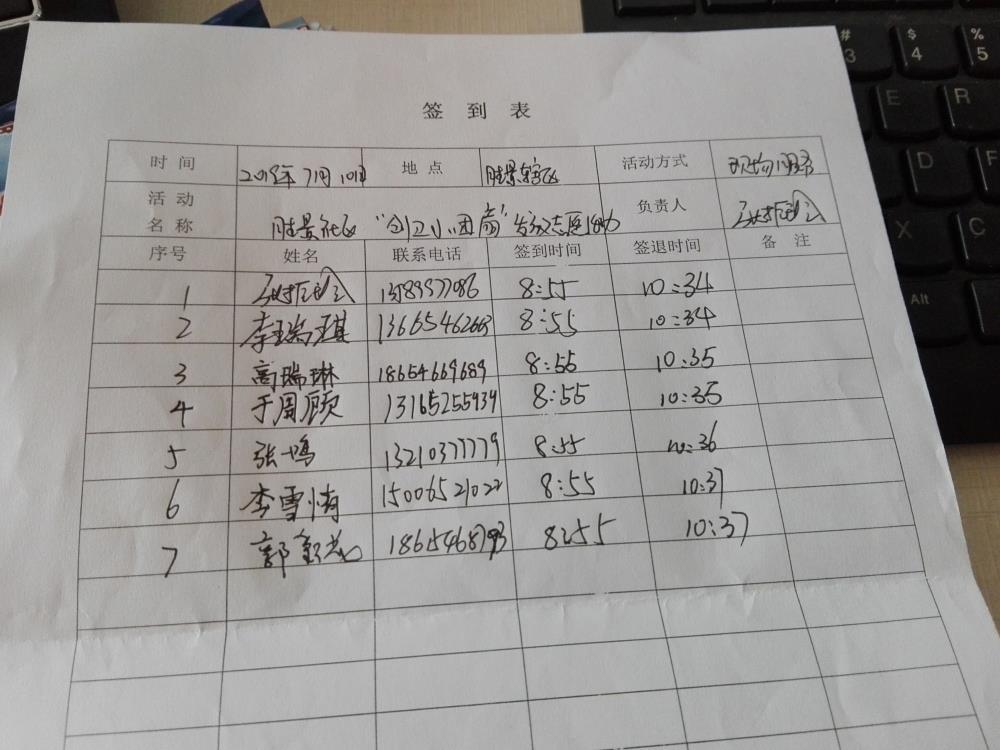 签 到 表
时 间 2018年7月10日 地 点 胜景辖区 活动方式 现场服务
活 动
名 称 胜景社区 "创卫小团扇" 发放志愿活动 负责人
序号 姓名 联系电话 签到时间 签退时间 备 注
1 13589977086 8:55 10:34
2 李瑞琪 8:55 10:34
3 高瑞琳 18654669689 8:55 10:35
4 于周顾 13165255939 8:55 10:35
5 张鸣 13210377779 8:55 10:36
6 李雪情 15006521022 8:55 10:37
7 郭 8:55 10:37
# 3
$ 4
% 5
E R
D F
X C
Alt